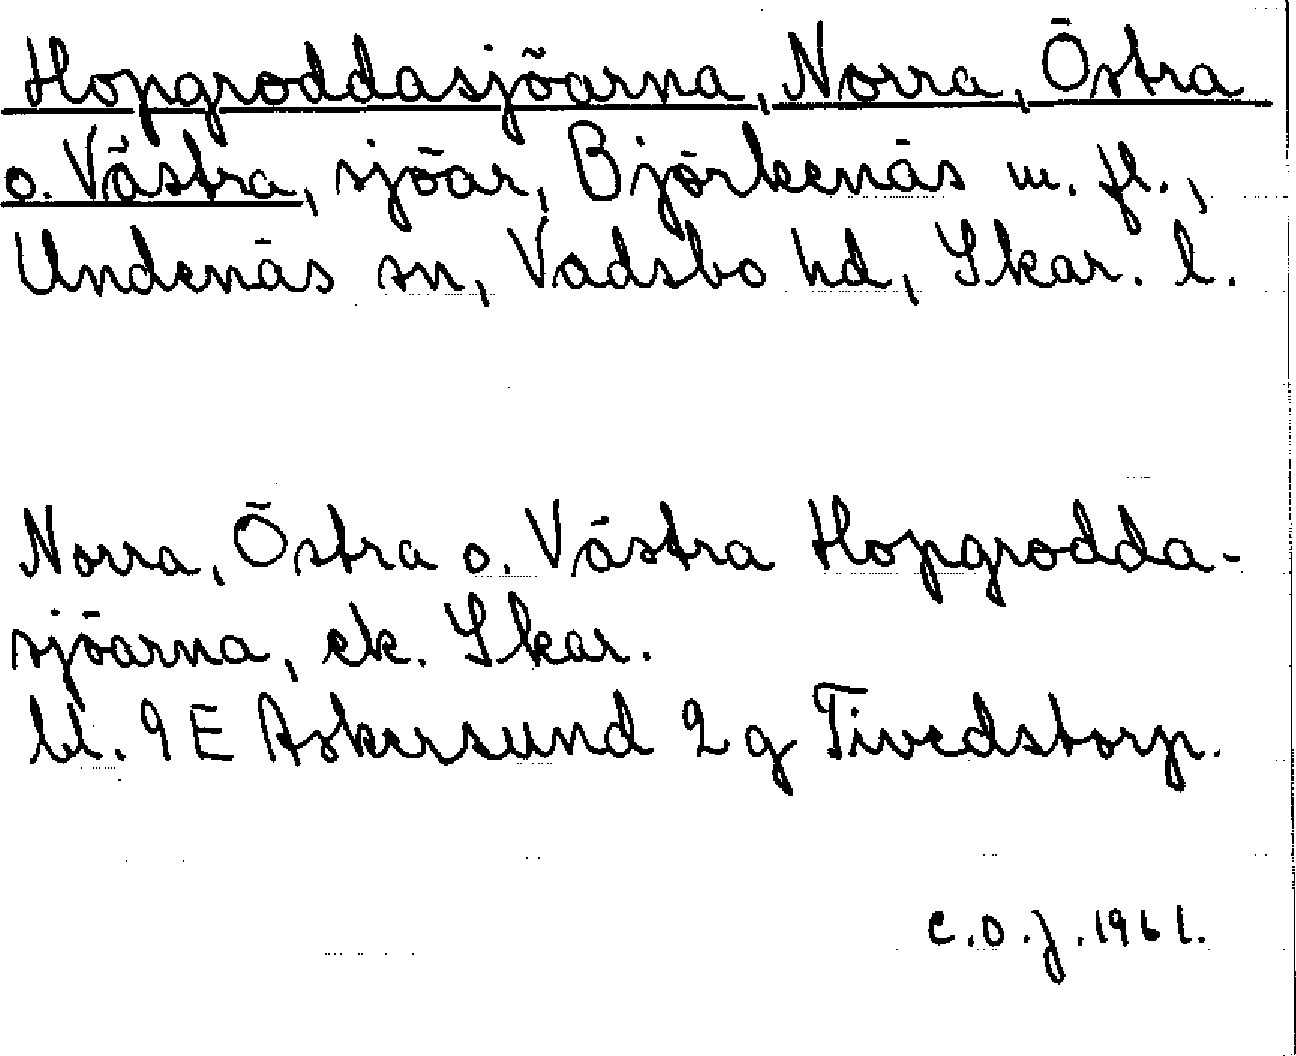 Hopgroddasjöarna, Norra, Östra
o. Västra, sjöar, Björkenäs m. fl.,
Undenäs sn, Vadsbo hd, Skar. l.
Norra, Östra o. Västra Hopgrodda-
sjöarna, ek. Skar.
bl. 9E Askersund 2g Tivedstorp.
C.O.J. 1961.